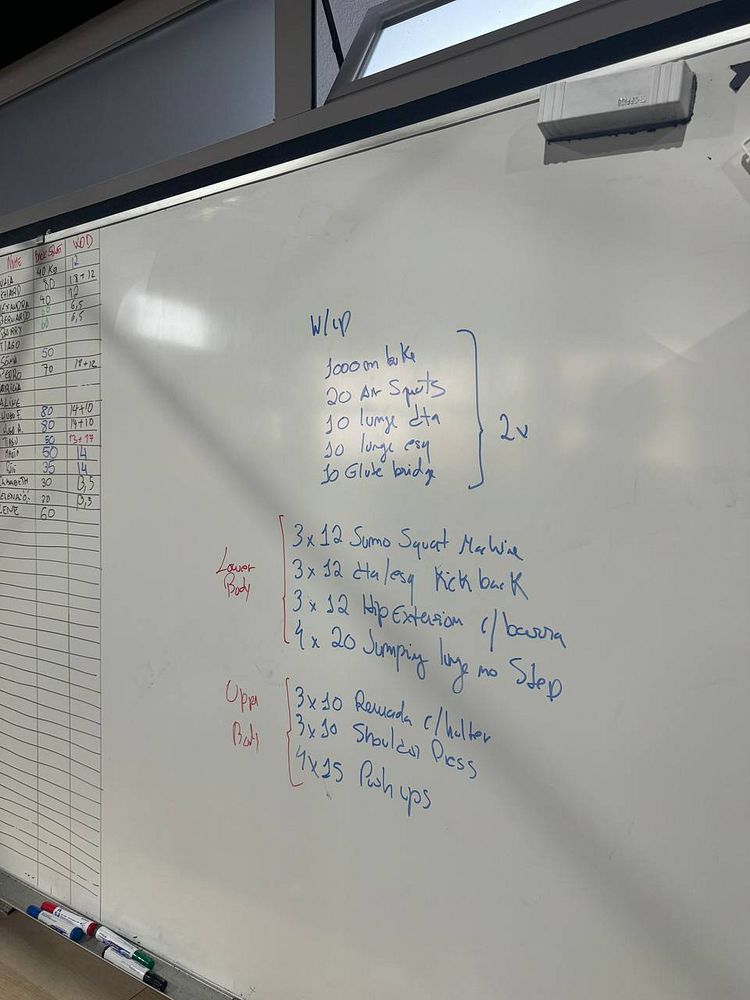 NOME BACK SQUAT WOD
40 Kg 12
80 18+12
40 12
60 6,5
60 6,5
TIAGO
50
PEDRO 70 18+12
ALINE
HUGO F. 80 14+10
HUGO A. 80 14+10
TIAGO 50 13+17
50 14
35 14
ELISABETH 30 13,5
20 13,5
60
W/up
1000m bike
20 Air Squats
10 lunge dta
10 lunge esq
10 Glute bridge
2x
Lower
Body
3x12 Sumo Squat Machine
3x12 dta/esq Kick back
3x12 Hip Extension c/barra
4x20 Jumping lunge no Step
Upper
Body
3x10 Remada c/halter
3x10 Shoulder Press
4x15 Push ups